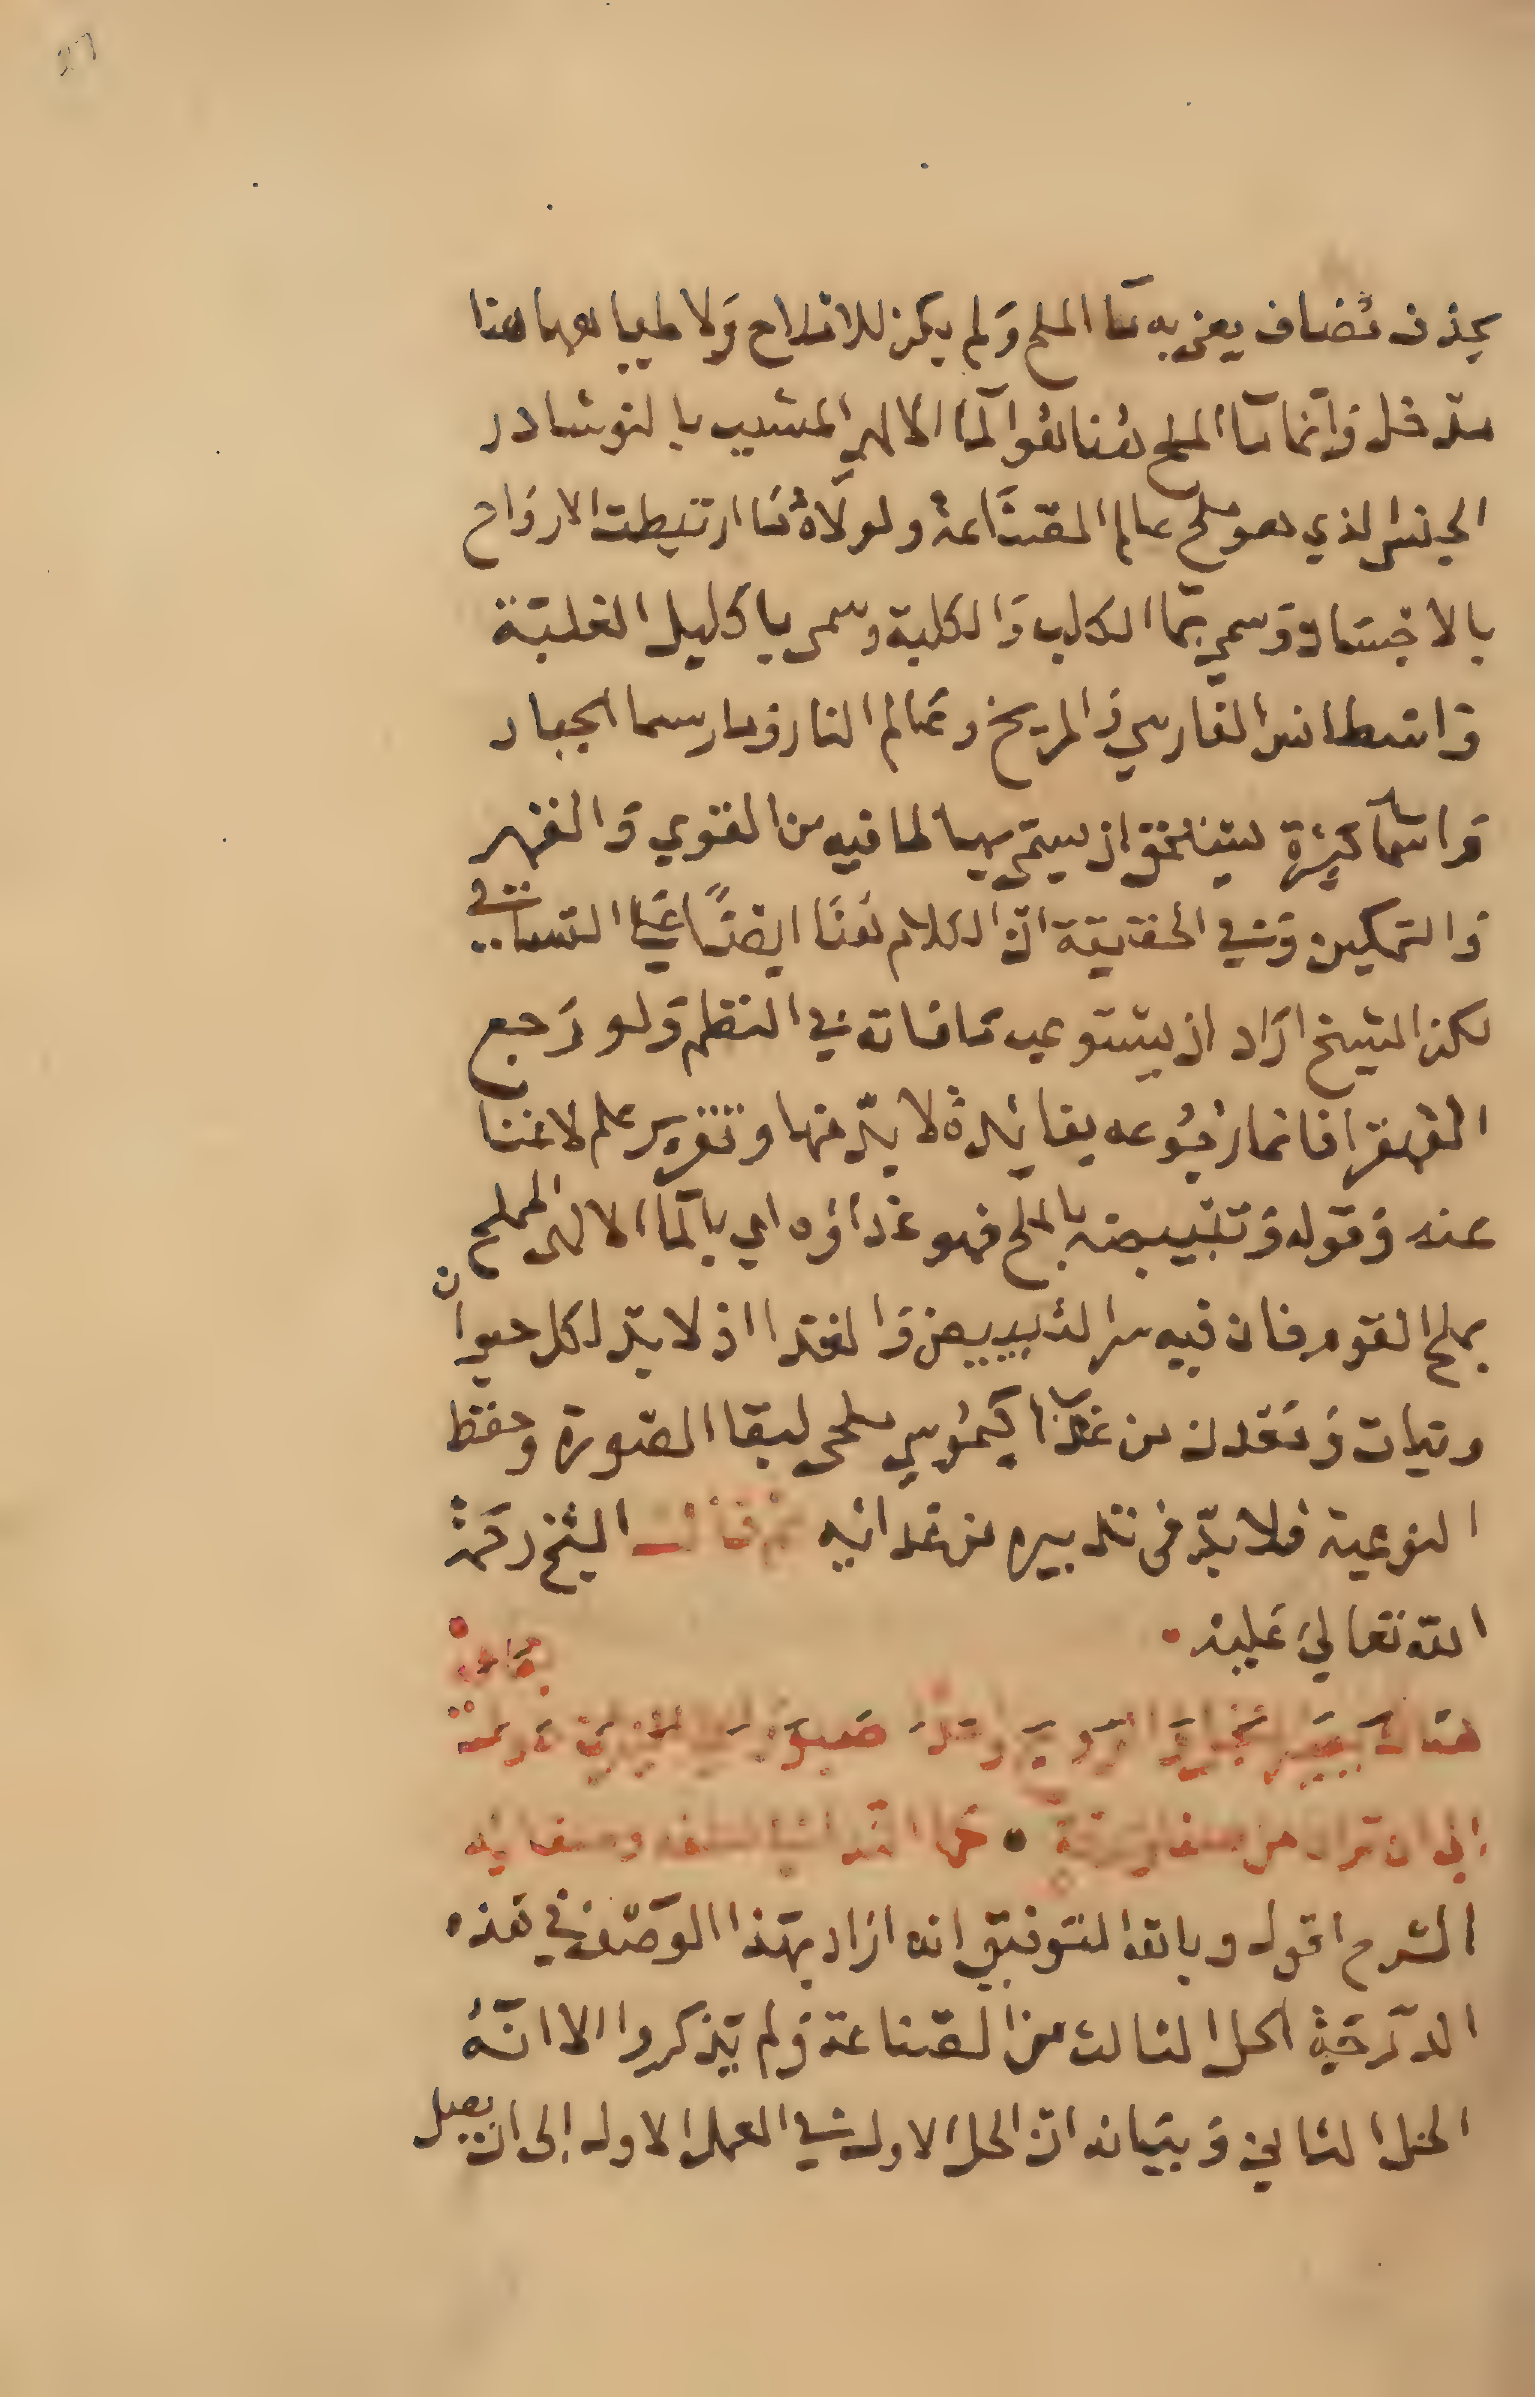 بحذف مضاف يعني به ماء الملح ولم يكن للاملاح ولا طيبا لهما هنا
مدخل وانما ماء الملح هنا هو الماء الالهي المشبب بالنوشادر
الجنس الذي هو ملح عالم الصناعة ولولاه ما ارتبطت الارواح
بالاجساد وسمي بماء الكلب والكلبة وسمي باكليل الغلبة
واسطانس الفارسي والمريخ وعالم النار ومارسما الجبار
واسما كثيرة يستحق ان يسمى بها لما فيه من القوي والقهر
والتمكين وفي الحقيقة ان الكلام هنا ايضا على التساقي
لكن الشيخ اراد ان يستوعب ما فات في النظم ولو رجع
القهقرا فانما رجوعه بفائدة لا بد منها وتقرير علم لا غنا
عنه وقوله وتبييضه بالملح فهو غذاؤه اي بالماء الالهي المملح
بملح القوم فان فيه سر التبييض والغذا اذ لا بد لكل حيوان
ونبات ومعدن من غذا كيموسي ملحي لبقا الصورة وحفظ
النوعية فلا بد في تدبيره من غذائه ثم قال الشيخ رحمة
الله تعالى عليه
الى ان تراه
الشرح اقول وبالله التوفيق انه اراد بهذا الوصف في هذه
الدرجة الحل الثالث من الصناعة ولم يذكروا الا انه
الحل الثاني وبيانه ان الحل الاول في العمل الاول الى ان يصل